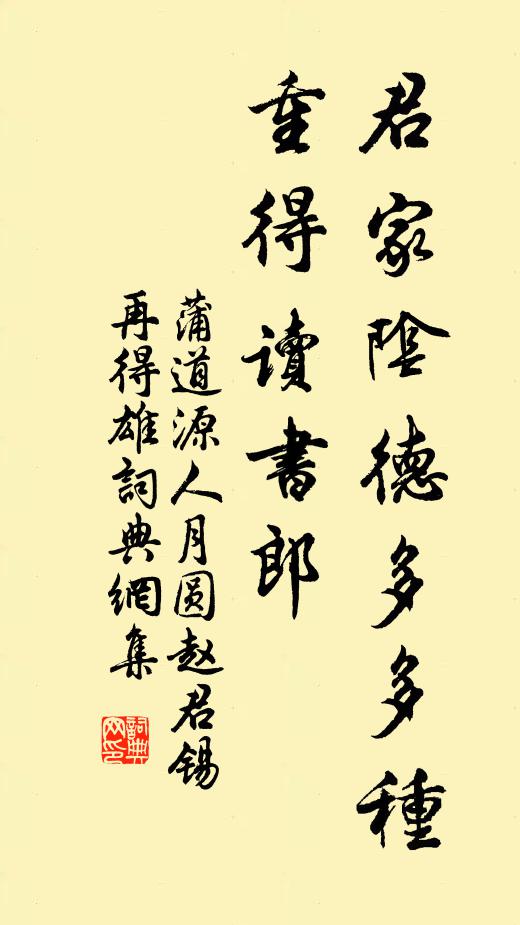 君家陰德多多種
重得讀書郎
蒲道源人月圆赵君錫
再得雄詞典網集
詞典網印